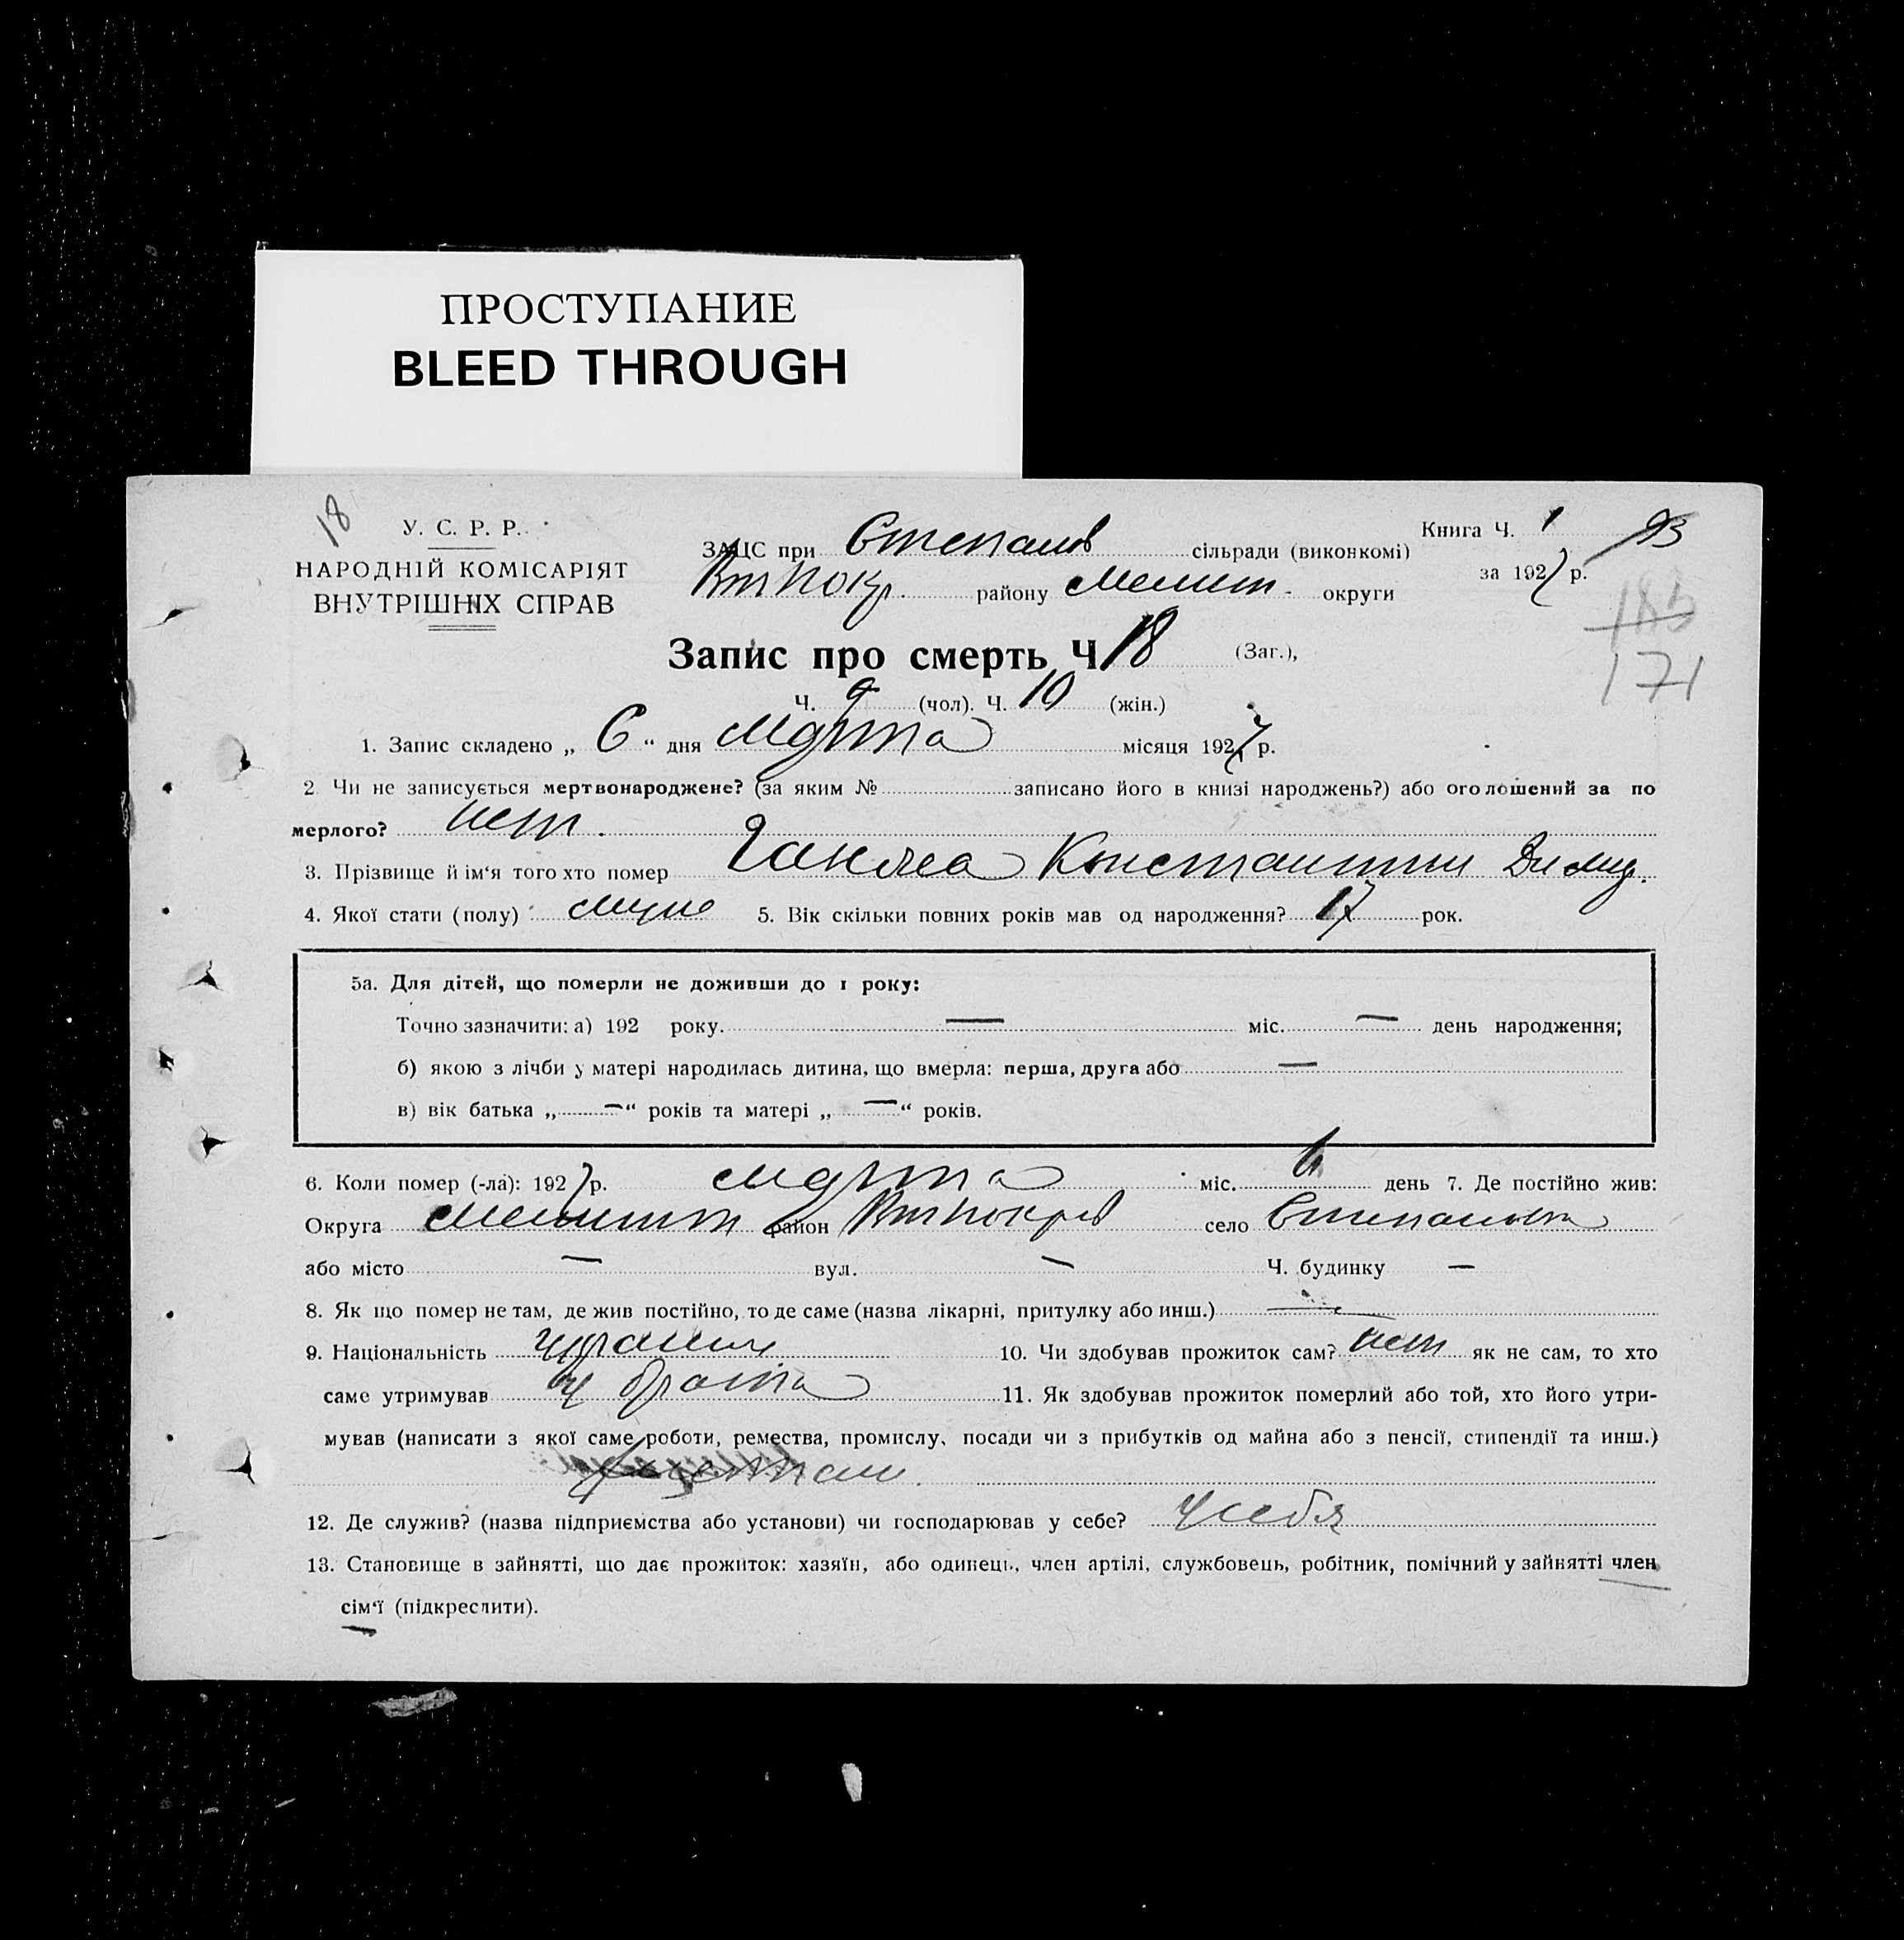 ПРОСТУПАНИЕ
BLEED THROUGH
18
У. С. Р. Р.
НАРОДНІЙ КОМІСАРІЯТ
ВНУТРІШНІХ СПРАВ
ЗАЦС при Степанов сільради (виконкомі)
району Мелит. округи
Книга Ч. 1
за 1927 р.
93
185
171
Запис про смерть Ч 18 (Заг.),
Ч. 9 (чол). Ч. 10 (жін.)
1. Запис складено „ 6 “ дня Марта місяця 1927 р.
2. Чи не записується мертвонароджене? (за яким № записано його в книзі народжень?) або оголошений за по
мерлого? нет.
3. Прізвище й ім‘я того хто помер Константин
4. Якої стати (полу) муж 5. Вік скільки повних років мав од народження? 17 рок.
5а. Для дітей, що померли не доживши до 1 року:
Точно зазначити: а) 192 року. — міс. — день народження;
б) якою з лічби у матері народилась дитина, що вмерла: перша, друга або —
в) вік батька „ — “ років та матері „ — “ років.
6. Коли помер (-ла): 1927 р. Марта міс. 6 день 7. Де постійно жив:
Округа Мелитоп район село Степановка
або місто — вул. — Ч. будинку —
8. Як що помер не там, де жив постійно, то де саме (назва лікарні, притулку або инш.) —
9. Національність 10. Чи здобував прожиток сам? нет як не сам, то хто
саме утримував у брата 11. Як здобував прожиток померлий або той, хто його утри-
мував (написати з якої саме роботи, ремества, промислу, посади чи з прибутків од майна або з пенсії, стипендії та инш.)
12. Де служив? (назва підприємства або установи) чи господарював у себе? у себя
13. Становище в зайнятті, що дає прожиток: хазяїн, або одинець, член артілі, службовець, робітник, помічний у зайнятті член
сім‘ї (підкреслити).